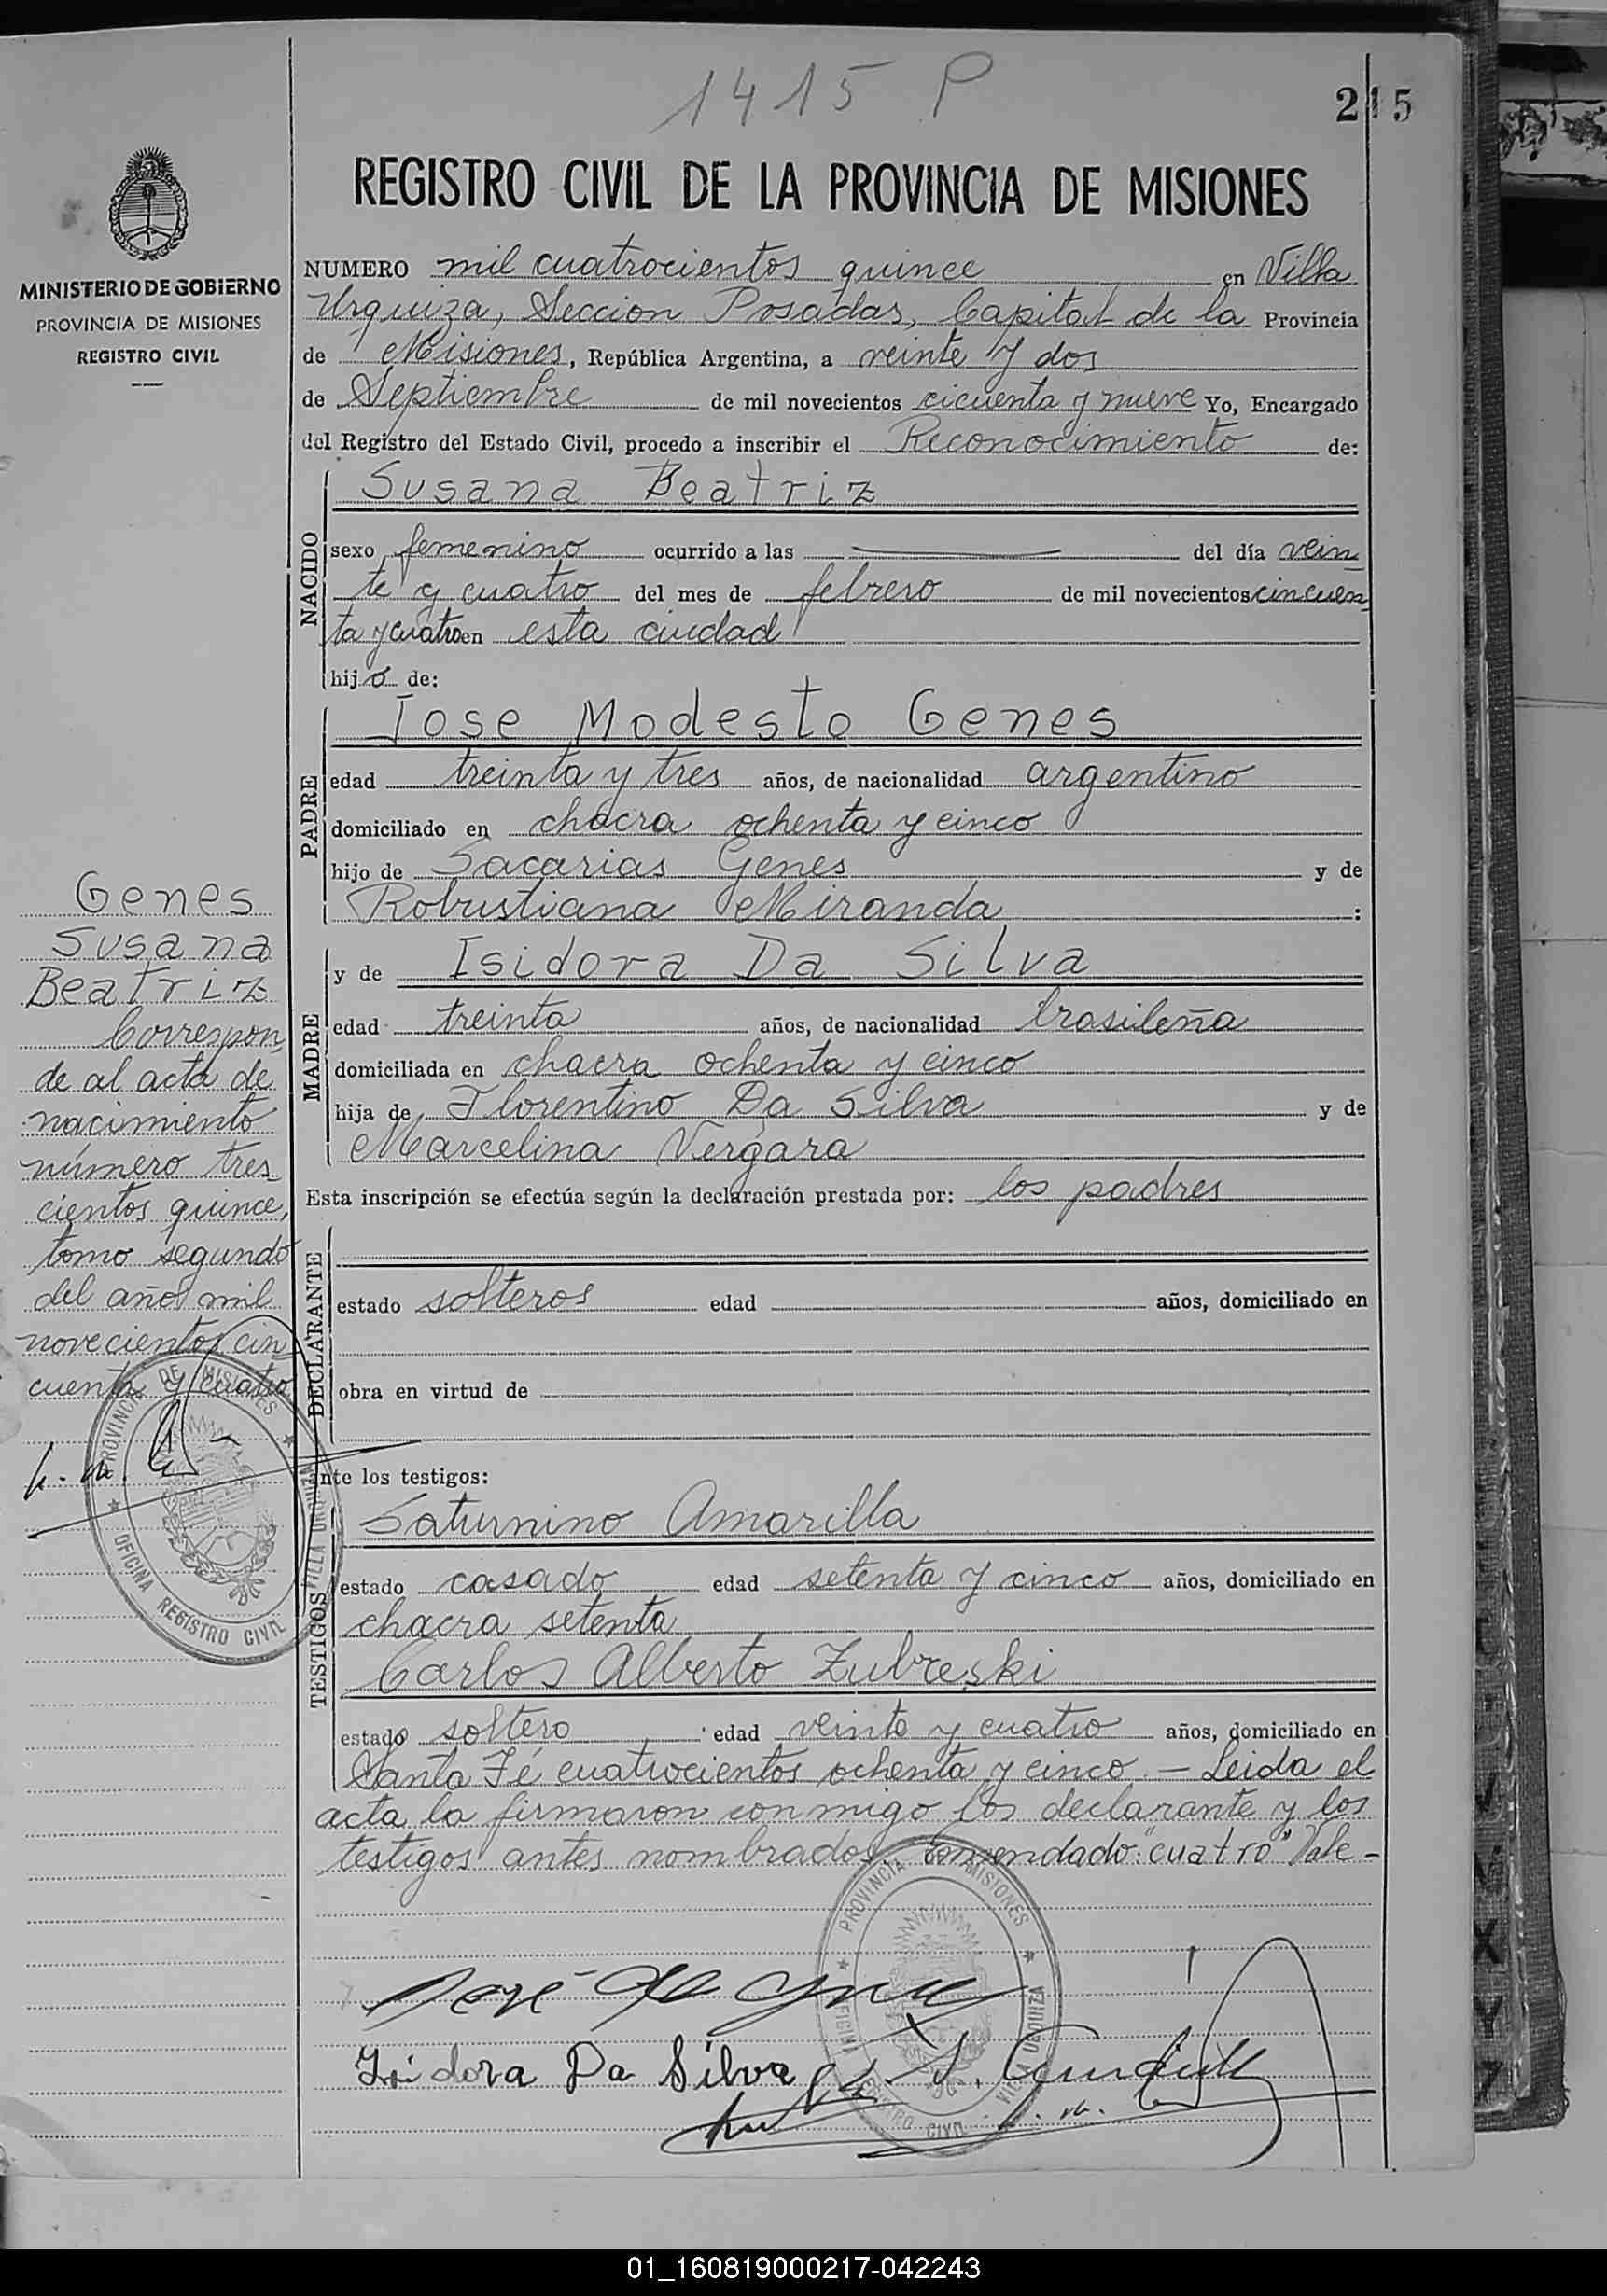 1415 P
215
MINISTERIO DE GOBIERNO
PROVINCIA DE MISIONES
REGISTRO CIVIL
REGISTRO CIVIL DE LA PROVINCIA DE MISIONES
NUMERO mil cuatrocientos quince en Villa
Urquiza, Seccion Posadas, Capital de la Provincia
de Misiones, República Argentina, a veinte y dos
de Septiembre de mil novecientos cicuenta y nueve Yo, Encargado
del Registro del Estado Civil, procedo a inscribir el Reconocimiento de:
NACIDO
Susana Beatriz
sexo femenino ocurrido a las del día vein
te y cuatro del mes de febrero de mil novecientos cincuen
ta y cuatro en esta ciudad
hijo de:
PADRE
Jose Modesto Genes
edad treinta y tres años, de nacionalidad argentino
domiciliado en chacra ochenta y cinco
hijo de Sacarias Genes y de
Robustiana Miranda :
MADRE
y de Isidora Da Silva
edad treinta años, de nacionalidad brasileña
domiciliada en chacra ochenta y cinco
hija de Florentino Da Silva y de
Marcelina Vergara
Esta inscripción se efectúa según la declaración prestada por: los padres
DECLARANTE
estado solteros edad años, domiciliado en
obra en virtud de
ante los testigos:
TESTIGOS
Saturnino Amarilla
estado casado edad setenta y cinco años, domiciliado en
chacra setenta
Carlos Alberto Zubreski
estado soltero edad veinte y cuatro años, domiciliado en
Santa Fé cuatrocientos ochenta y cinco.- Leida el
acta la firmaron conmigo los declarante y los
testigos antes nombrados. Enmendado: "cuatro" Vale-
Genes
Susana
Beatriz
Correspon
de al acta de
nacimiento
número tres
cientos quince,
tomo segundo
del año mil
novecientos cin
cuenta y cuatro
PROVINCIA DE MISIONES
OFICINA REGISTRO CIVIL
VILLA URQUIZA
PROVINCIA DE MISIONES
OFICINA REGISTRO CIVIL
VILLA URQUIZA
José
Isidora Da Silva
01_160819000217-042243